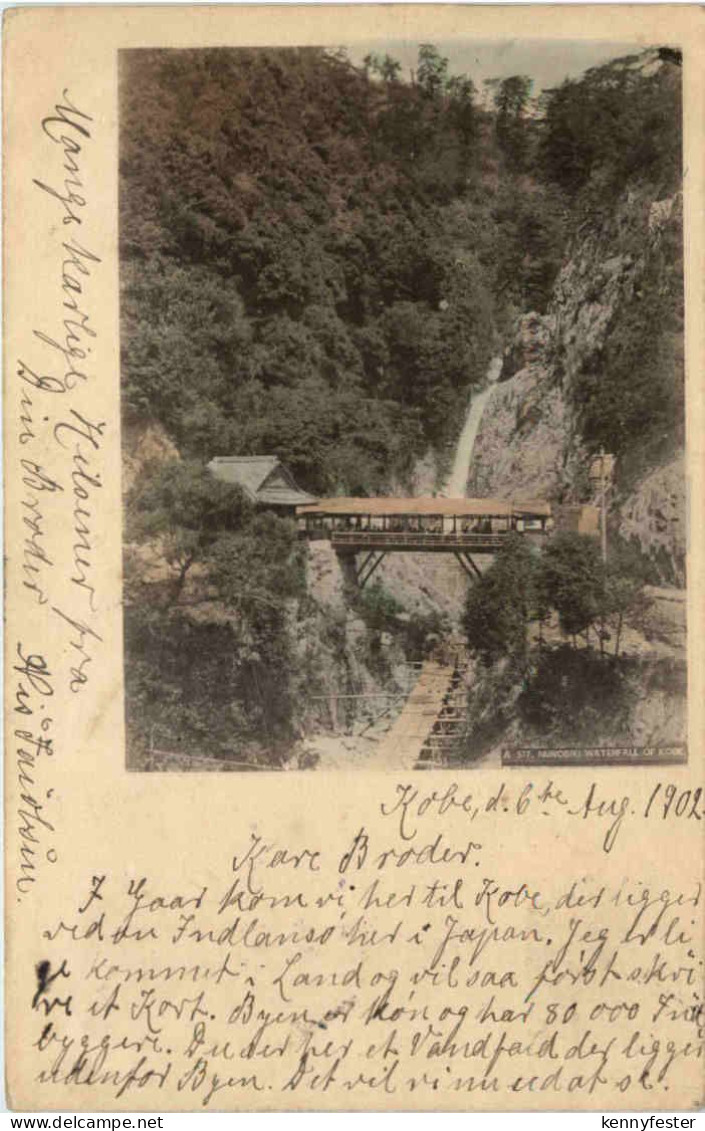 A 577. NUNOBIKI WATERFALL OF KOBE.
Kobe, d. 6te Aug. 1902.
Kære Broder.
I Gaar kom vi her til Kobe, der ligger
ved en Indlandsø her i Japan. Jeg er li
ge kommet i Land og vil saa først skri
ve et Kort. Byen er køn og har 80 000 Ind
byggere. Du ser her et Vandfald der ligger
udenfor Byen. Det vil vi nu ud at se.
Mange kærlige Hilsener fra
Din Broder
Nis
kennyfester